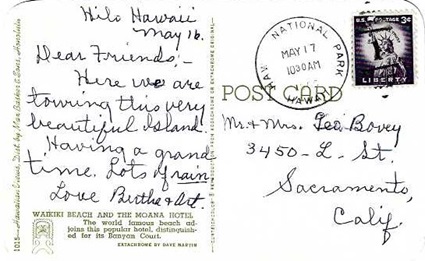 Hilo Hawaii
May 16.
Dear Friends;-
Here we are
touring this very
beautiful Island.
Having a grand
time. Lots of rain.
Love Birtha & Art.
WAIKIKI BEACH AND THE MOANA HOTEL
The world famous beach ad-
joins this popular hotel, distinguish-
ed for its Banyan Court.
EKTACHROME BY DAVE MARTIN
POST CARD
NATIONAL PARK
MAY 17
1030 AM
HAWAII
U.S. POSTAGE 3¢
LIBERTY
Mr. & Mrs. Geo Bovey
3450 - L - St.
Sacramento,
Calif.